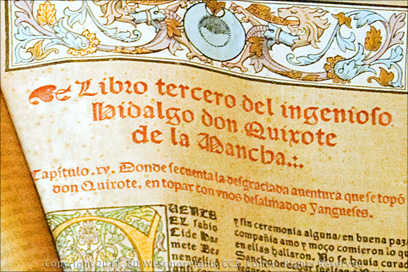 Libro tercero del ingenioso
hidalgo don Quixote
de la Mancha:.
Capítulo. xv. Donde se cuenta la desgraciada aventura que se topó
don Quixote, en topar con unos desalmados Yangueses.
CUENTA
EL sabio
Cide Ha-
mete Be-
nengeli
y sin ceremonia alguna, en buena paz
compañia amo y moço comieron lo
en ellas hallaron. No se havia curado
Copyright